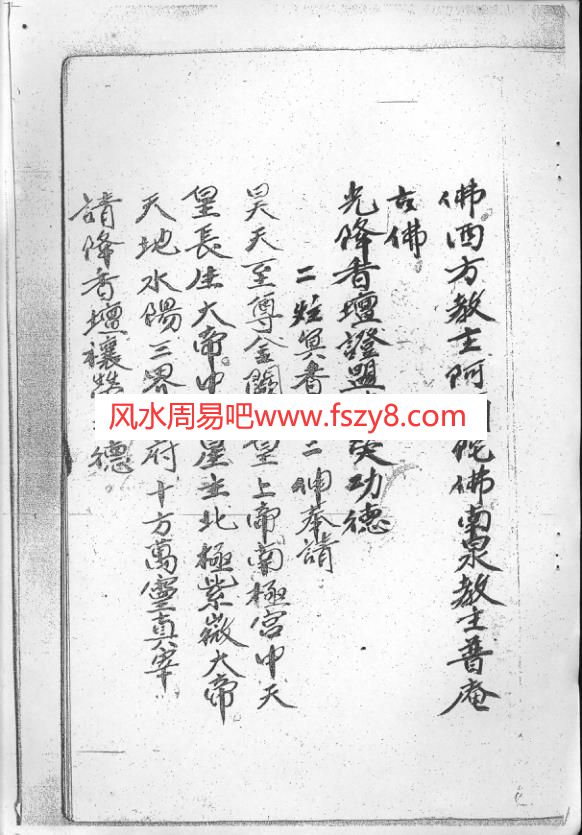 佛西方教主阿陀佛南泉教主普庵
古佛
光降香壇證盟功德
二炷冥香二伸奉請
昊天至尊金闕皇上帝南極宮中天
皇長生大帝中星主北極紫微大帝
天地水陽三界府十方萬靈真宰
請降香壇禳德
风水周易吧www.fszy8.com